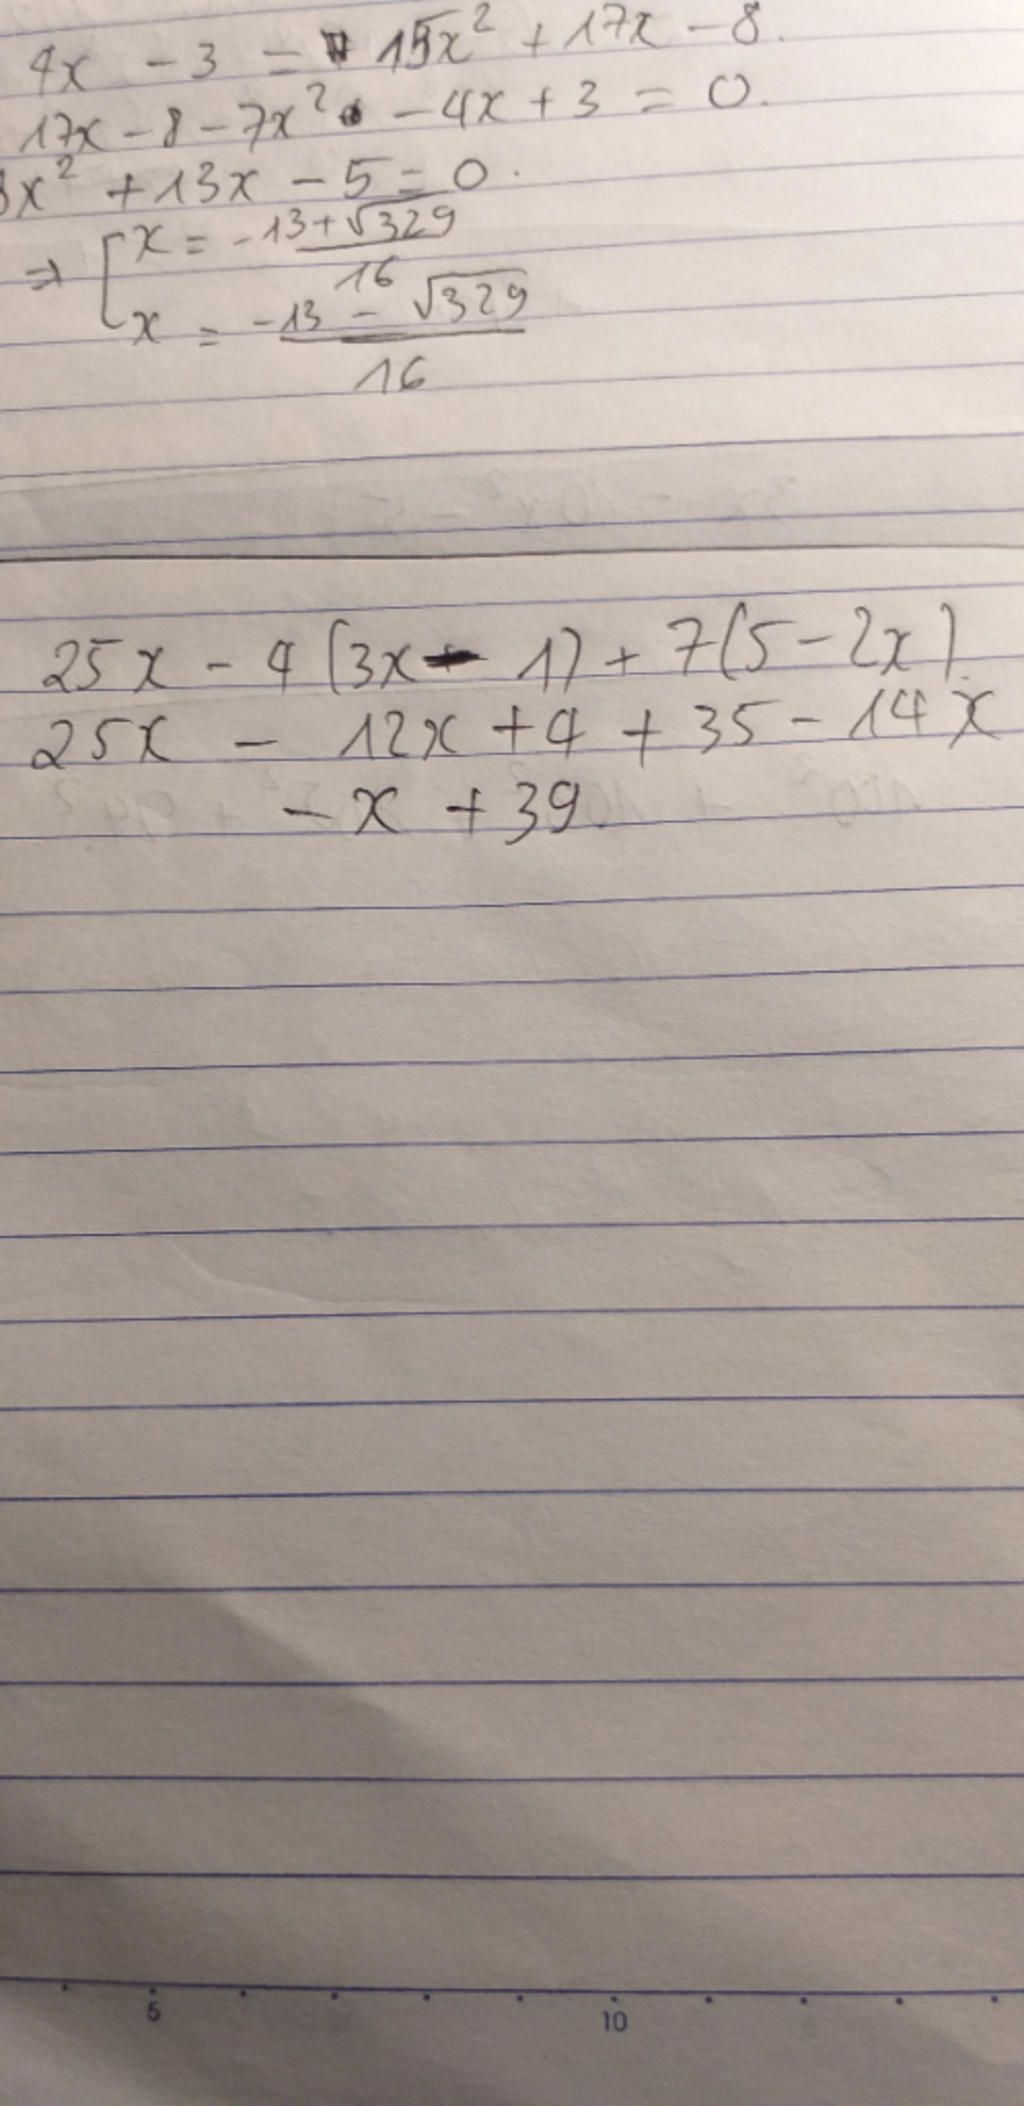 4x - 3 = 15x² + 17x - 8.
17x - 8 - 7x² - 4x + 3 = 0.
8x² + 13x - 5 = 0.
⇒ [ x = -13 + √329 / 16
x = -13 - √329 / 16
25x - 4(3x - 1) + 7(5 - 2x).
25x - 12x + 4 + 35 - 14x
-x + 39.
5 10